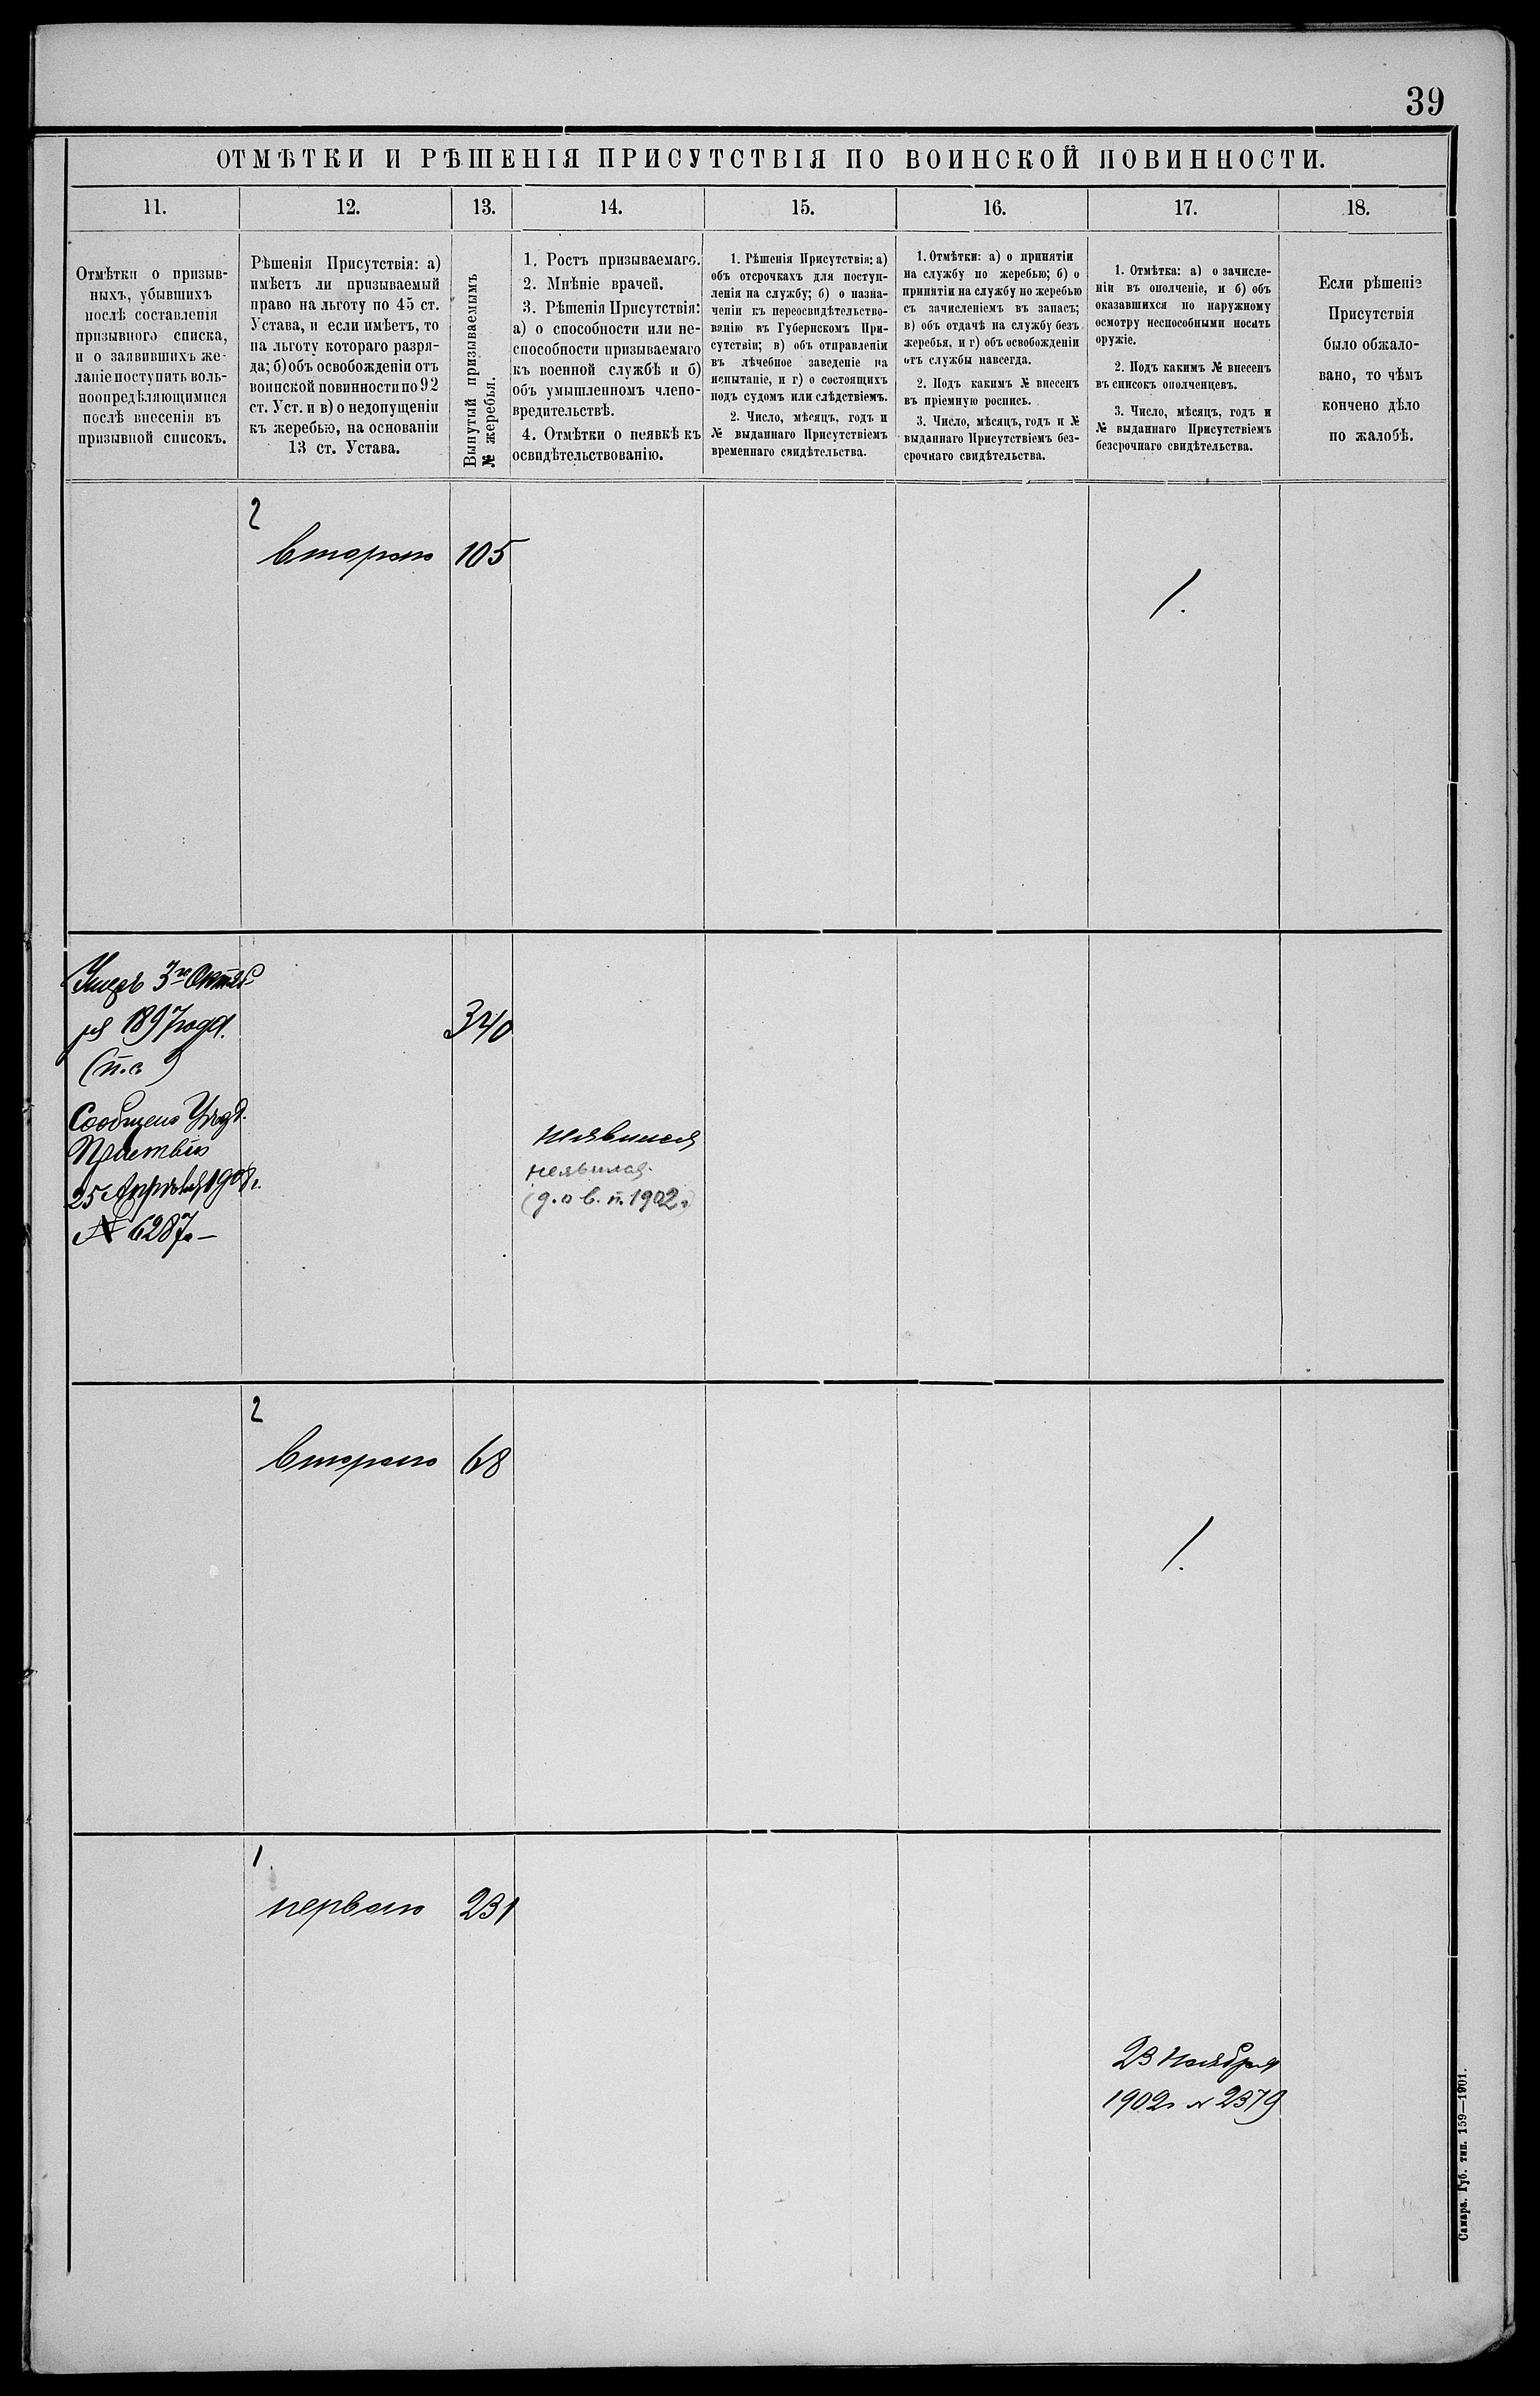 39
ОТМѢТКИ И РѢШЕНІЯ ПРИСУТСТВІЯ ПО ВОИНСКОЙ ПОВИННОСТИ.
11.
12.
13.
14.
15.
16.
17.
18.
Отмѣтки о призыв-
ныхъ, убывшихъ
послѣ составленія
призывного списка,
и о заявившихъ же-
ланіе поступить воль-
ноопредѣляющимися
послѣ внесенія въ
призывной списокъ.
Рѣшенія Присутствія: а)
имѣетъ ли призываемый
право на льготу по 45 ст.
Устава, и если имѣетъ, то
на льготу котораго разря-
да; б) объ освобожденіи отъ
воинской повинности по 92
ст. Уст. и в) о недопущеніи
къ жеребью, на основаніи
13 ст. Устава.
Вынутый призываемымъ
№ жеребья.
1. Ростъ призываемаго.
2. Мнѣніе врачей.
3. Рѣшенія Присутствія:
а) о способности или не-
способности призываемаго
къ военной службѣ и б)
объ умышленномъ члено-
вредительствѣ.
4. Отмѣтки о неявкѣ къ
освидѣтельствованію.
1. Рѣшенія Присутствія: а)
объ отсрочкахъ для поступ-
ленія на службу; б) о назна-
ченіи къ переосвидѣтельство-
ванію въ Губернскомъ При-
сутствіи; в) объ отправленіи
въ лѣчебное заведеніе на
испытаніе, и г) о состоящихъ
подъ судомъ или слѣдствіемъ.
2. Число, мѣсяцъ, годъ и
№ выданнаго Присутствіемъ
временнаго свидѣтельства.
1. Отмѣтки: а) о принятіи
на службу по жеребью; б) о
принятіи на службу по жеребью
съ зачисленіемъ въ запасъ;
в) объ отдачѣ на службу безъ
жеребья, и г) объ освобожденіи
отъ службы навсегда.
2. Подъ какимъ № внесенъ
въ пріемную роспись.
3. Число, мѣсяцъ, годъ и №
выданнаго Присутствіемъ без-
срочнаго свидѣтельства.
1. Отмѣтка: а) о зачисле-
ніи въ ополченіе, и б) объ
оказавшихся по наружному
осмотру неспособными носить
оружіе.
2. Подъ какимъ № внесенъ
въ списокъ ополченцевъ.
3. Число, мѣсяцъ, годъ и
№ выданнаго Присутствіемъ
безсрочнаго свидѣтельства.
Если рѣшеніе
Присутствія
было обжало-
вано, то чѣмъ
кончено дѣло
по жалобѣ.
2
второго 105
1.
Умеръ 3го Октяб
ря 1897 года.
(п.с.)
340
Сообщено Уѣзд.
25 Апрѣля 1908 г.
№ 6287.—
неявился
неявился
(д. о в. п. 1902 г)
2
второго 68
1.
1.
первого 231
23 Ноября
1902 г № 2379
Самара. Губ. тип. 159—1901.